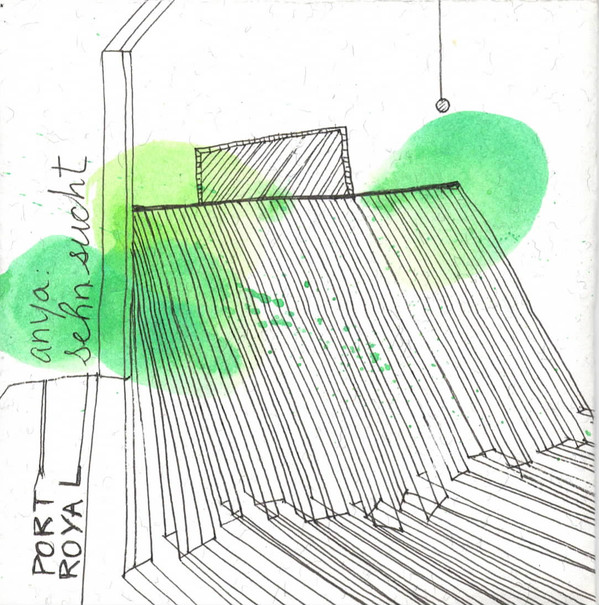 anya:
sehnsucht
PORT
ROYAL